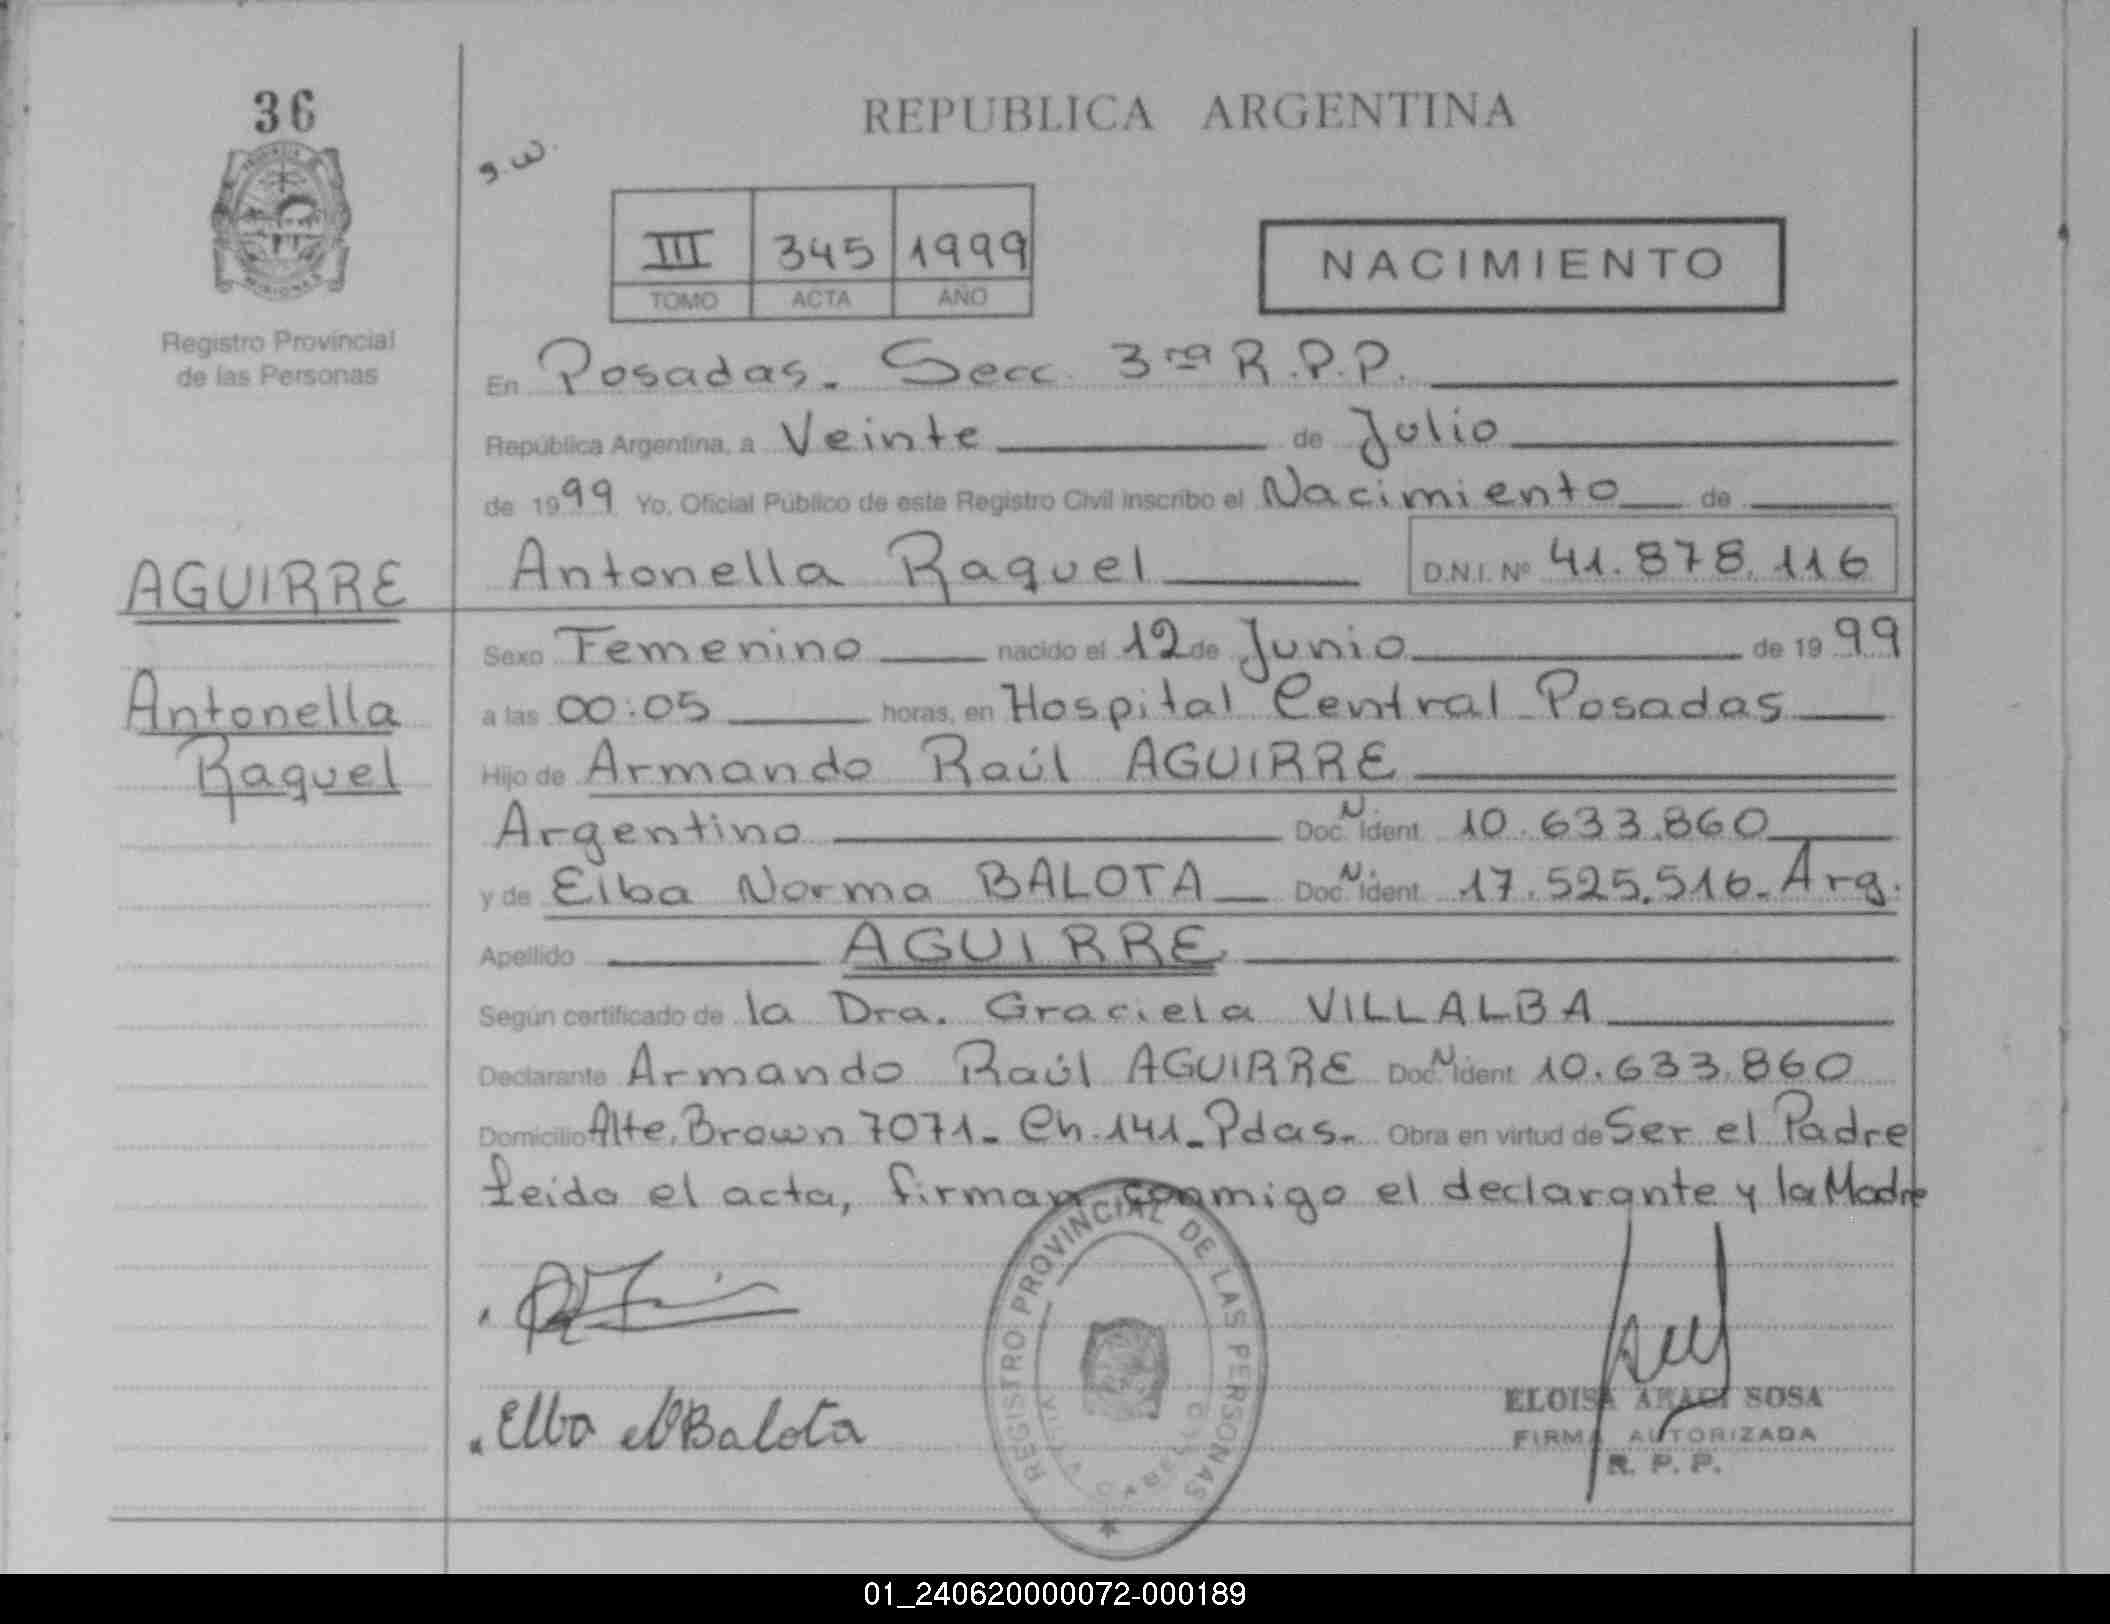 36
REPUBLICA ARGENTINA
g.w.
III 345 1999
TOMO ACTA AÑO
NACIMIENTO
Registro Provincial
de las Personas
En Posadas. Secc. 3ra R.P.P.
República Argentina, a Veinte de Julio
de 1999 Yo, Oficial Público de este Registro Civil inscribo el Nacimiento de
Antonella Raquel D.N.I. Nº 41.878.116
AGUIRRE
Antonella
Raquel
Sexo Femenino nacido el 12 de Junio de 1999
a las 00:05 horas, en Hospital Central Posadas
Hijo de Armando Raúl AGUIRRE
Argentino Doc. N. Ident. 10.633.860
y de Elba Norma BALOTA Doc. N. Ident. 17.525.516. Arg.
Apellido AGUIRRE
Según certificado de la Dra. Graciela VILLALBA
Declarante Armando Raúl AGUIRRE Doc. N. Ident. 10.633.860
Domicilio Alte. Brown 7071. Ch. 141. Pdas. Obra en virtud de Ser el Padre
Leido el acta, firman conmigo el declarante y la Madre
REGISTRO PROVINCIAL DE LAS PERSONAS
VILLA CABELLO
Elba N Balota
ELOISA ARACI SOSA
FIRMA AUTORIZADA
R. P. P.
01_240620000072-000189